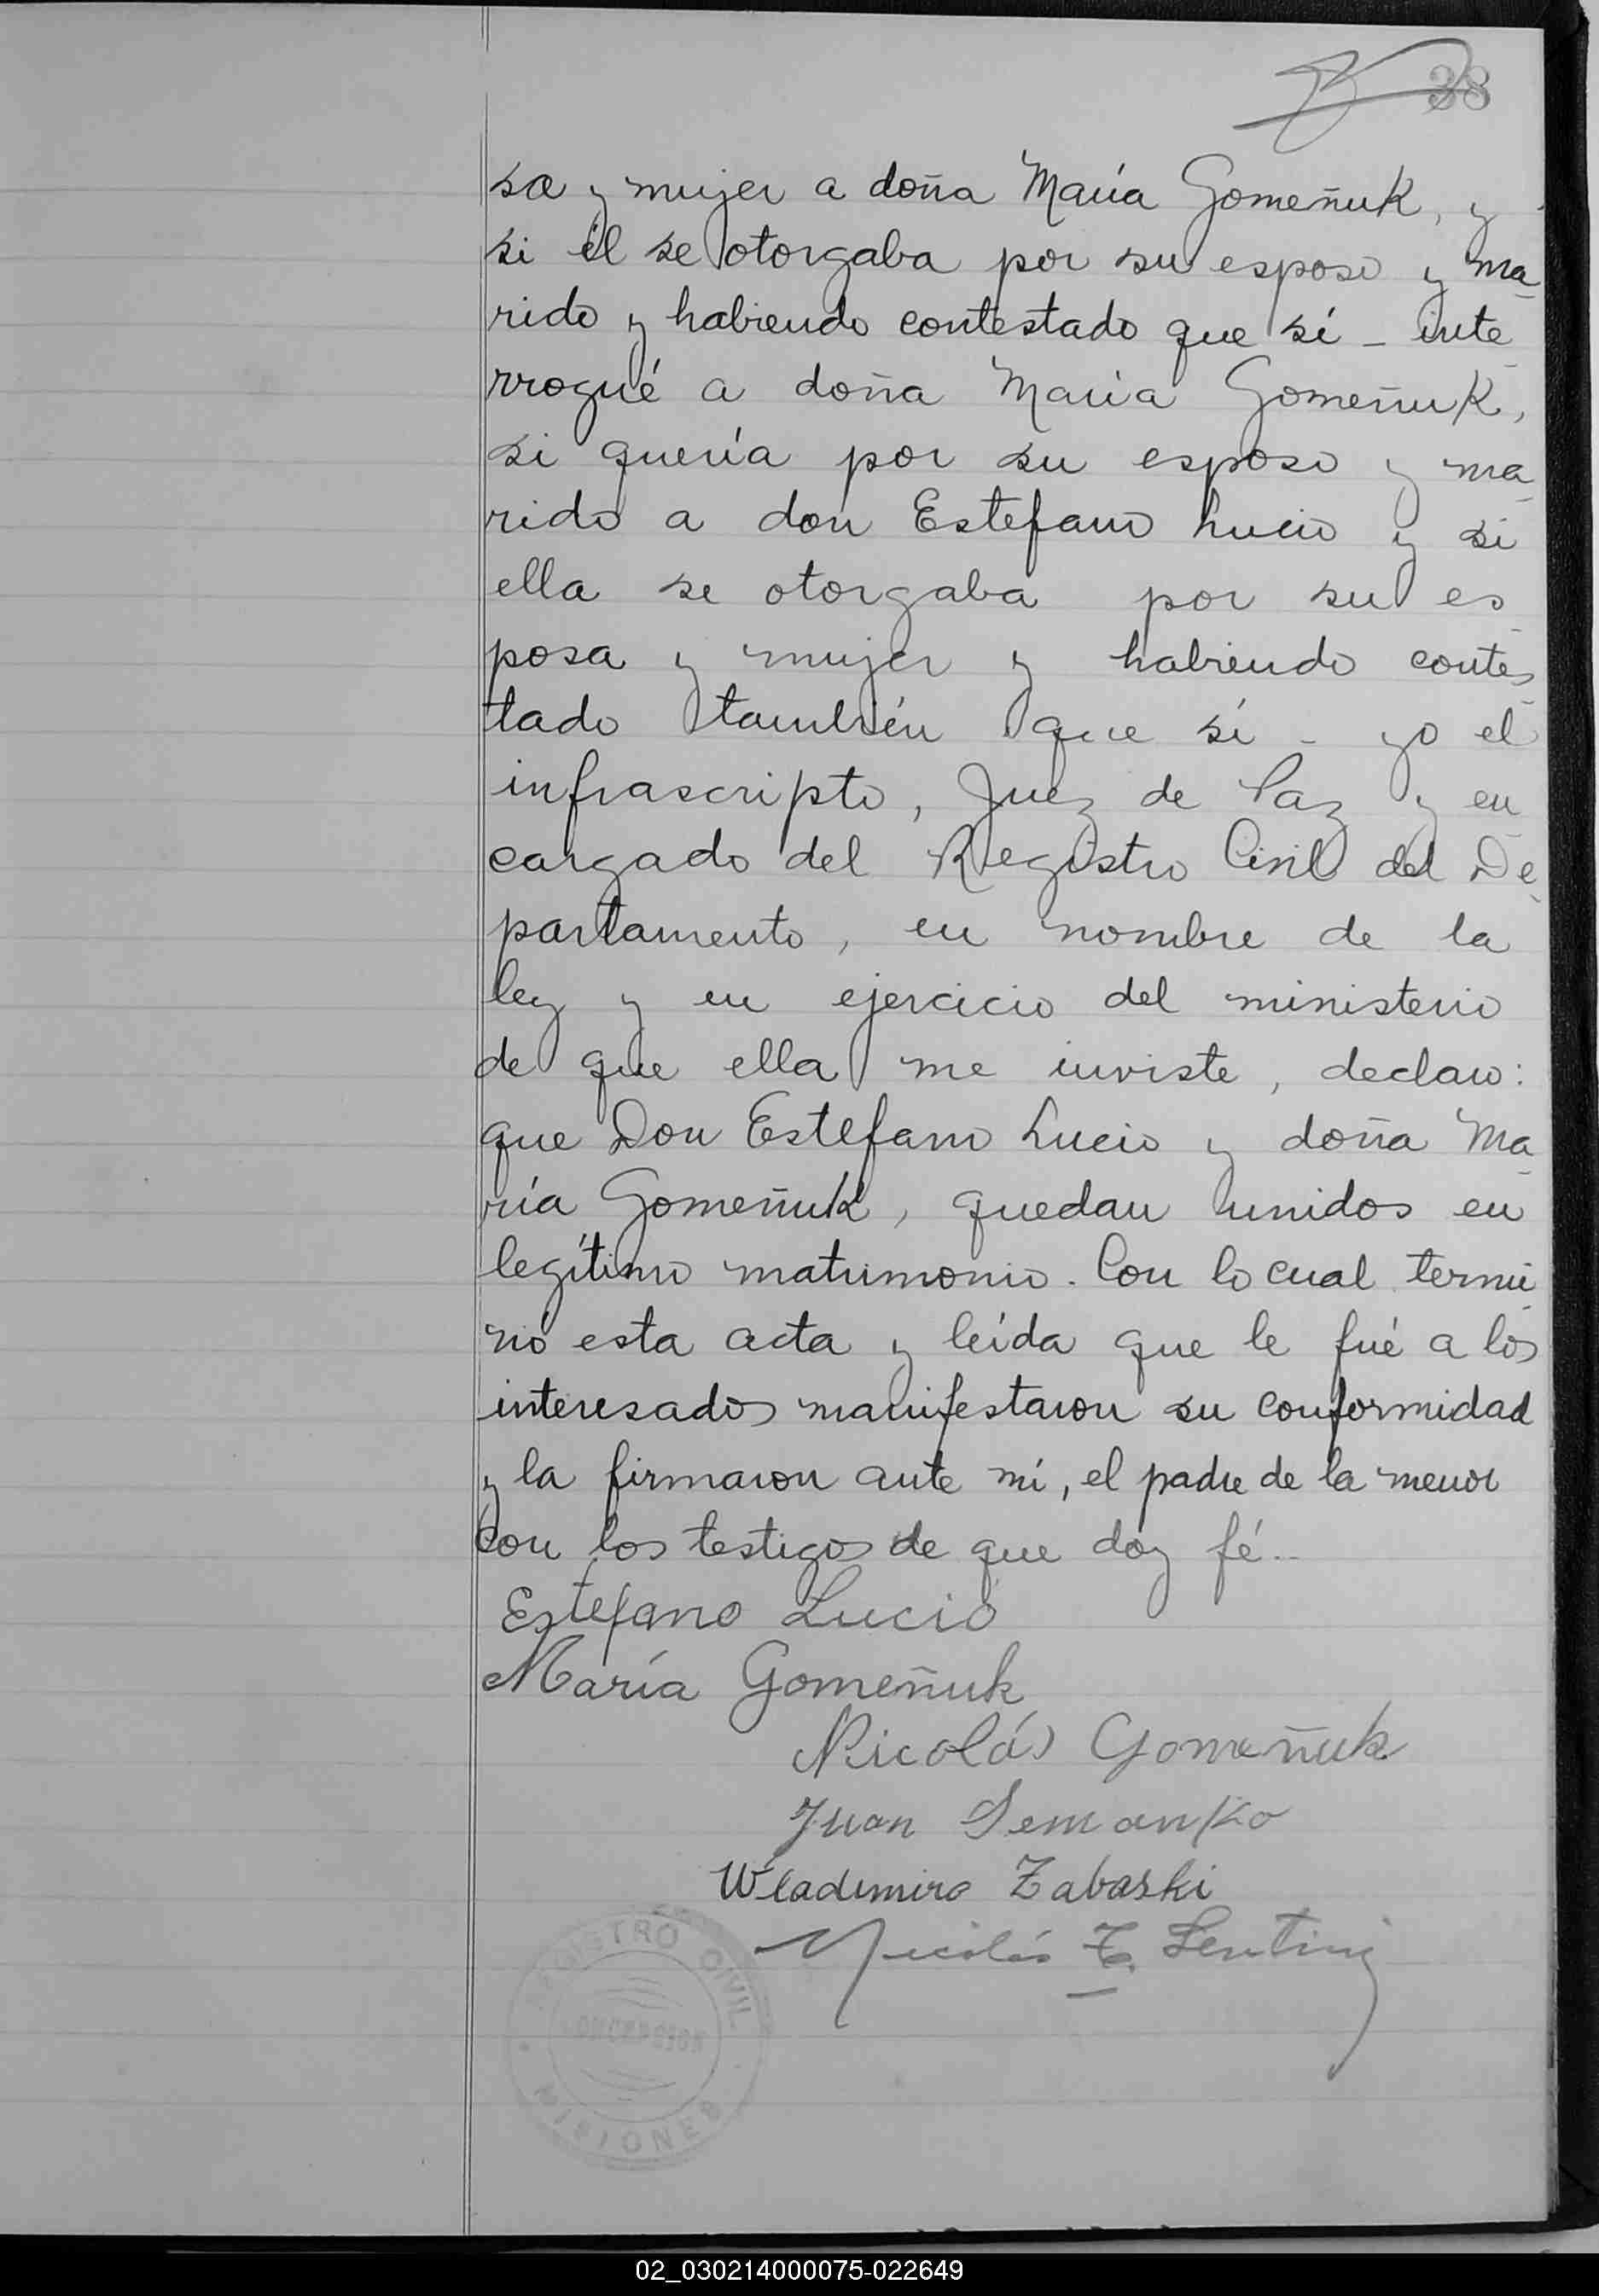 38
sa y mujer a doña María Gomeñuk, y
si él se otorgaba por su esposo y ma
rido y habiendo contestado que sí _ inte
rrogué a doña María Gomeñuk,
si quería por su esposo y ma
rido a don Estefano Lucio y si
ella se otorgaba por su es
posa y mujer y habiendo contes
tado también que sí _ yo el
infrascripto, Juez de Paz y en
cargado del Registro Civil del De
partamento, en nombre de la
ley y en ejercicio del ministerio
de que ella me inviste, declaro:
que Don Estefano Lucio y doña Ma
ría Gomeñuk, quedan unidos en
legítimo matrimonio. Con lo cual termi
nó esta acta y leída que le fué a los
interesados manifestaron su conformidad
y la firmaron ante mí, el padre de la menor
con los testigos de que doy fé..
Estefano Lucio
María Gomeñuk
Nicolás Gomeñuk
Juan Semanko
Wladimiro Zabaski
Nicolás Lentini
REGISTRO CIVIL
MISIONES
02_030214000075-022649